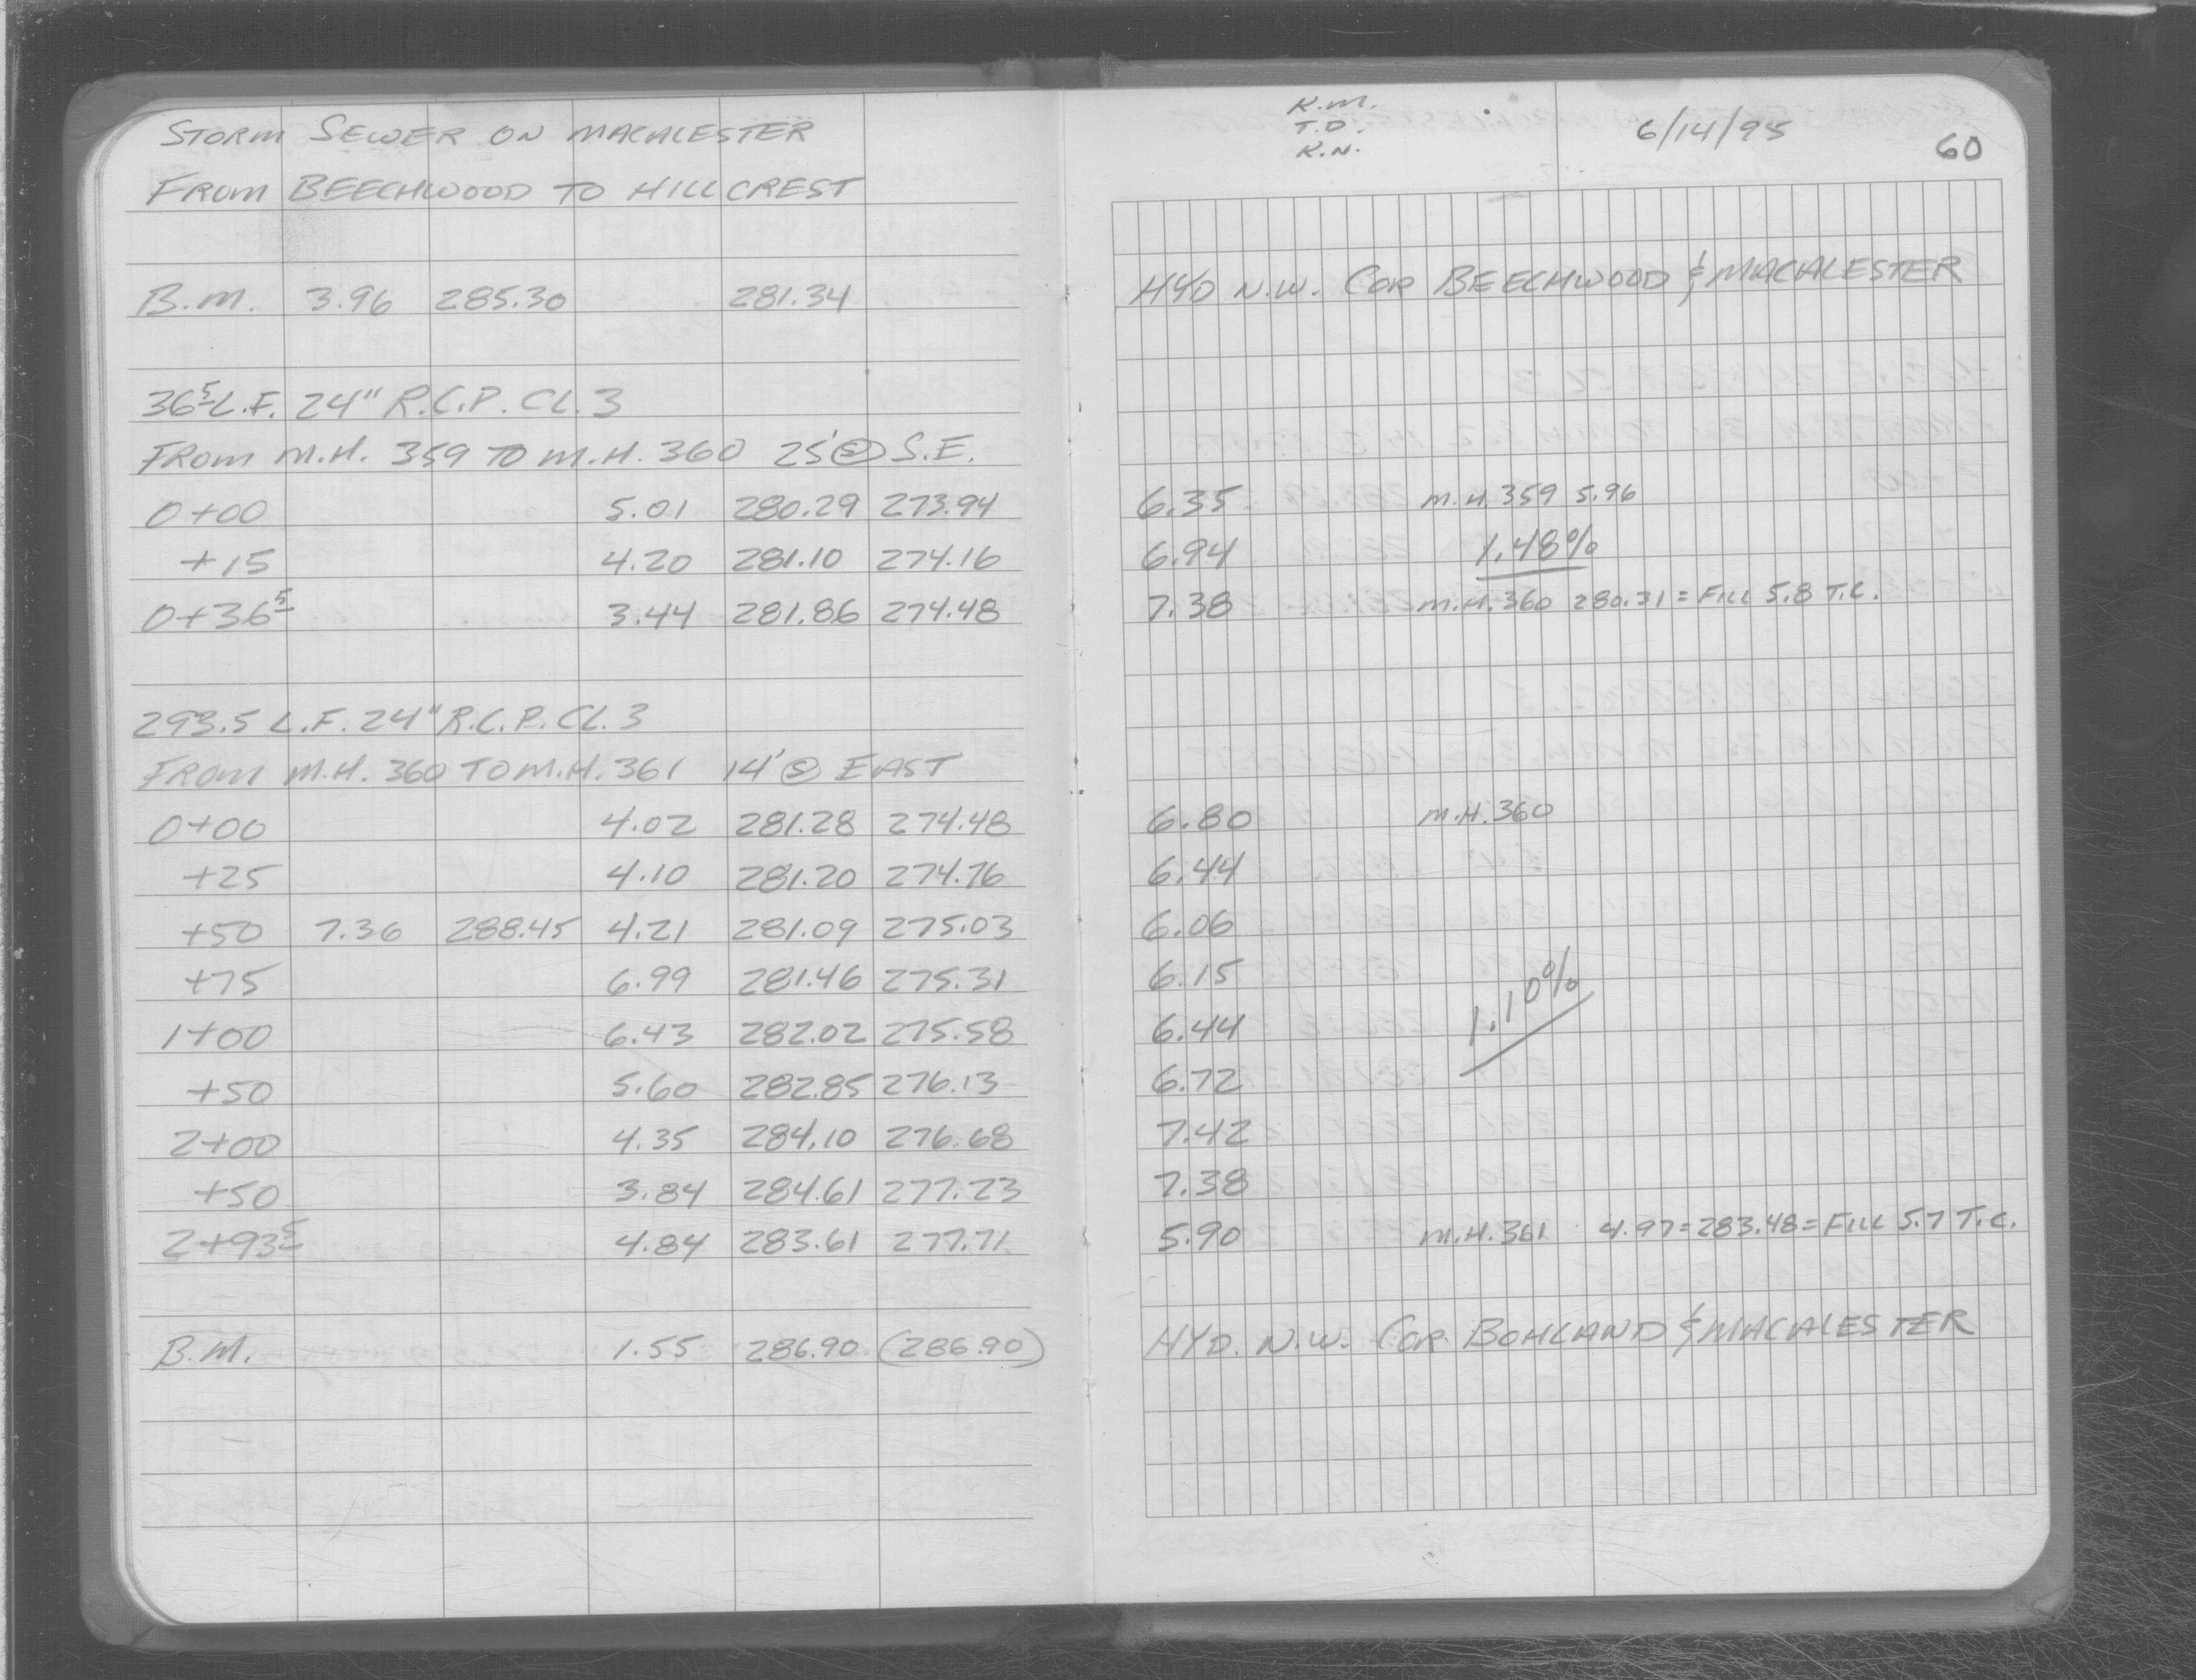 STORM SEWER ON MACALESTER
FROM BEECHWOOD TO HILLCREST
B.M. 3.96 285.30 281.34
36⁵ L.F. 24" R.C.P. CL. 3
FROM M.H. 359 TO M.H. 360 25' Ⓢ S.E.
0+00 5.01 280.29 273.94
+15 4.20 281.10 274.16
0+36⁵ 3.44 281.86 274.48
293.5 L.F. 24" R.C.P. CL. 3
FROM M.H. 360 TO M.H. 361 14' Ⓢ EAST
0+00 4.02 281.28 274.48
+25 4.10 281.20 274.76
+50 7.36 288.45 4.21 281.09 275.03
+75 6.99 281.46 275.31
1+00 6.43 282.02 275.58
+50 5.60 282.85 276.13
2+00 4.35 284.10 276.68
+50 3.84 284.61 277.23
2+93⁵ 4.84 283.61 277.71
B.M. 1.55 286.90 (286.90)
K.M.
T.D.
K.N.
6/14/95
60
HYD N.W. COR BEECHWOOD & MACALESTER
6.35 M.H. 359 5.96
6.94 1.48%
7.38 M.H. 360 280.31 = FILL 5.8 T.C.
6.80 M.H. 360
6.44
6.06
6.15
1.10%
6.44
6.72
7.42
7.38
5.90 M.H. 361 4.97 = 283.48 = FILL 5.7 T.C.
HYD. N.W. COR. BOHLAND & MACALESTER